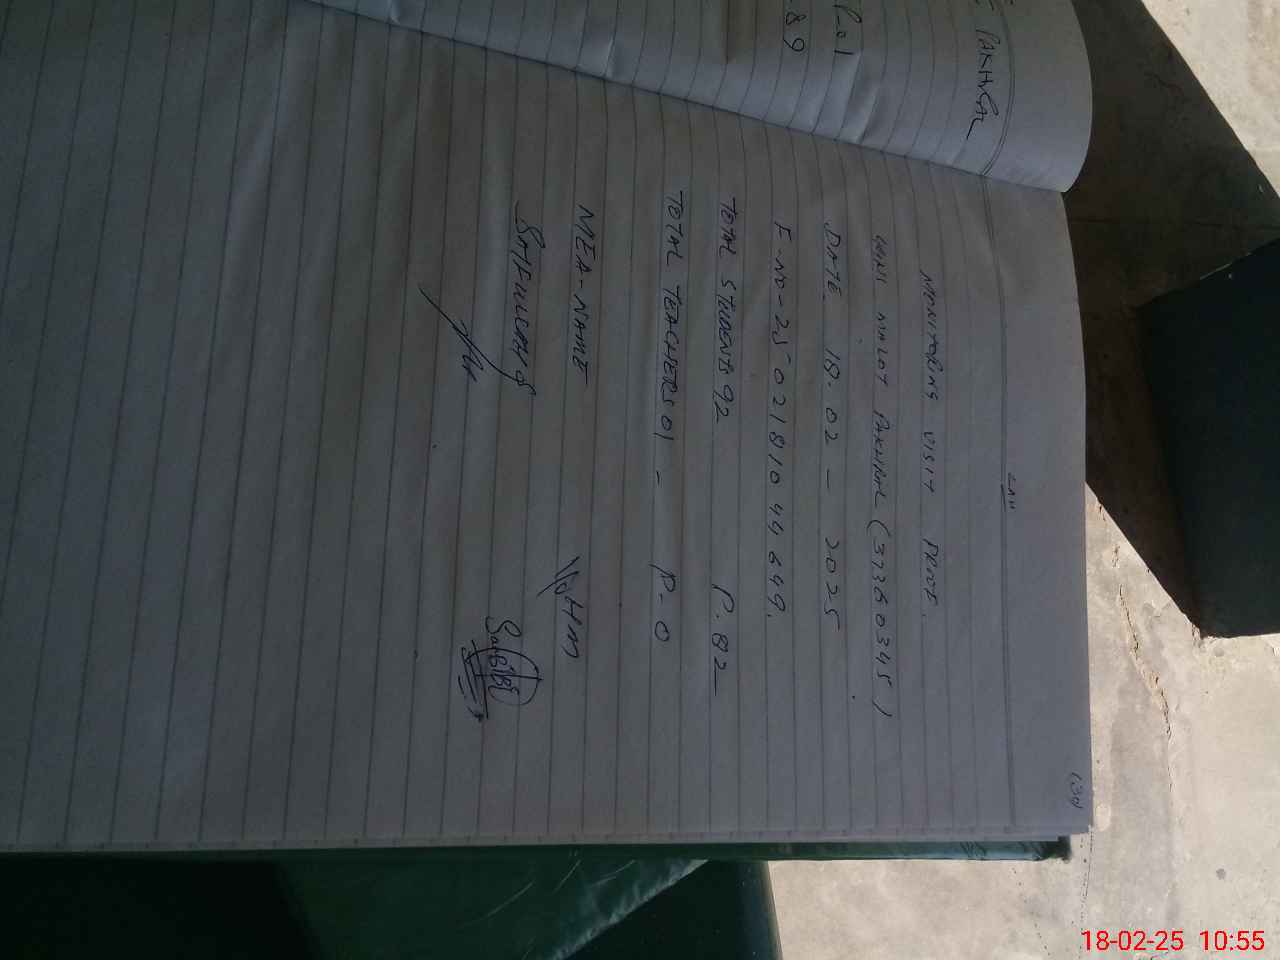 PAKHRAL
P-01
89
(34)
MONITORING VISIT PROF.
MALOT PAKHRAL (37360345)
DATE. 18.02 - 2025
F-NO-2502181044649.
TOTAL STUDENTS 92 P. 82
TOTAL TEACHERS 01 - P-0
MEA-NAME HM
SAIFULLAH
18-02-25 10:55